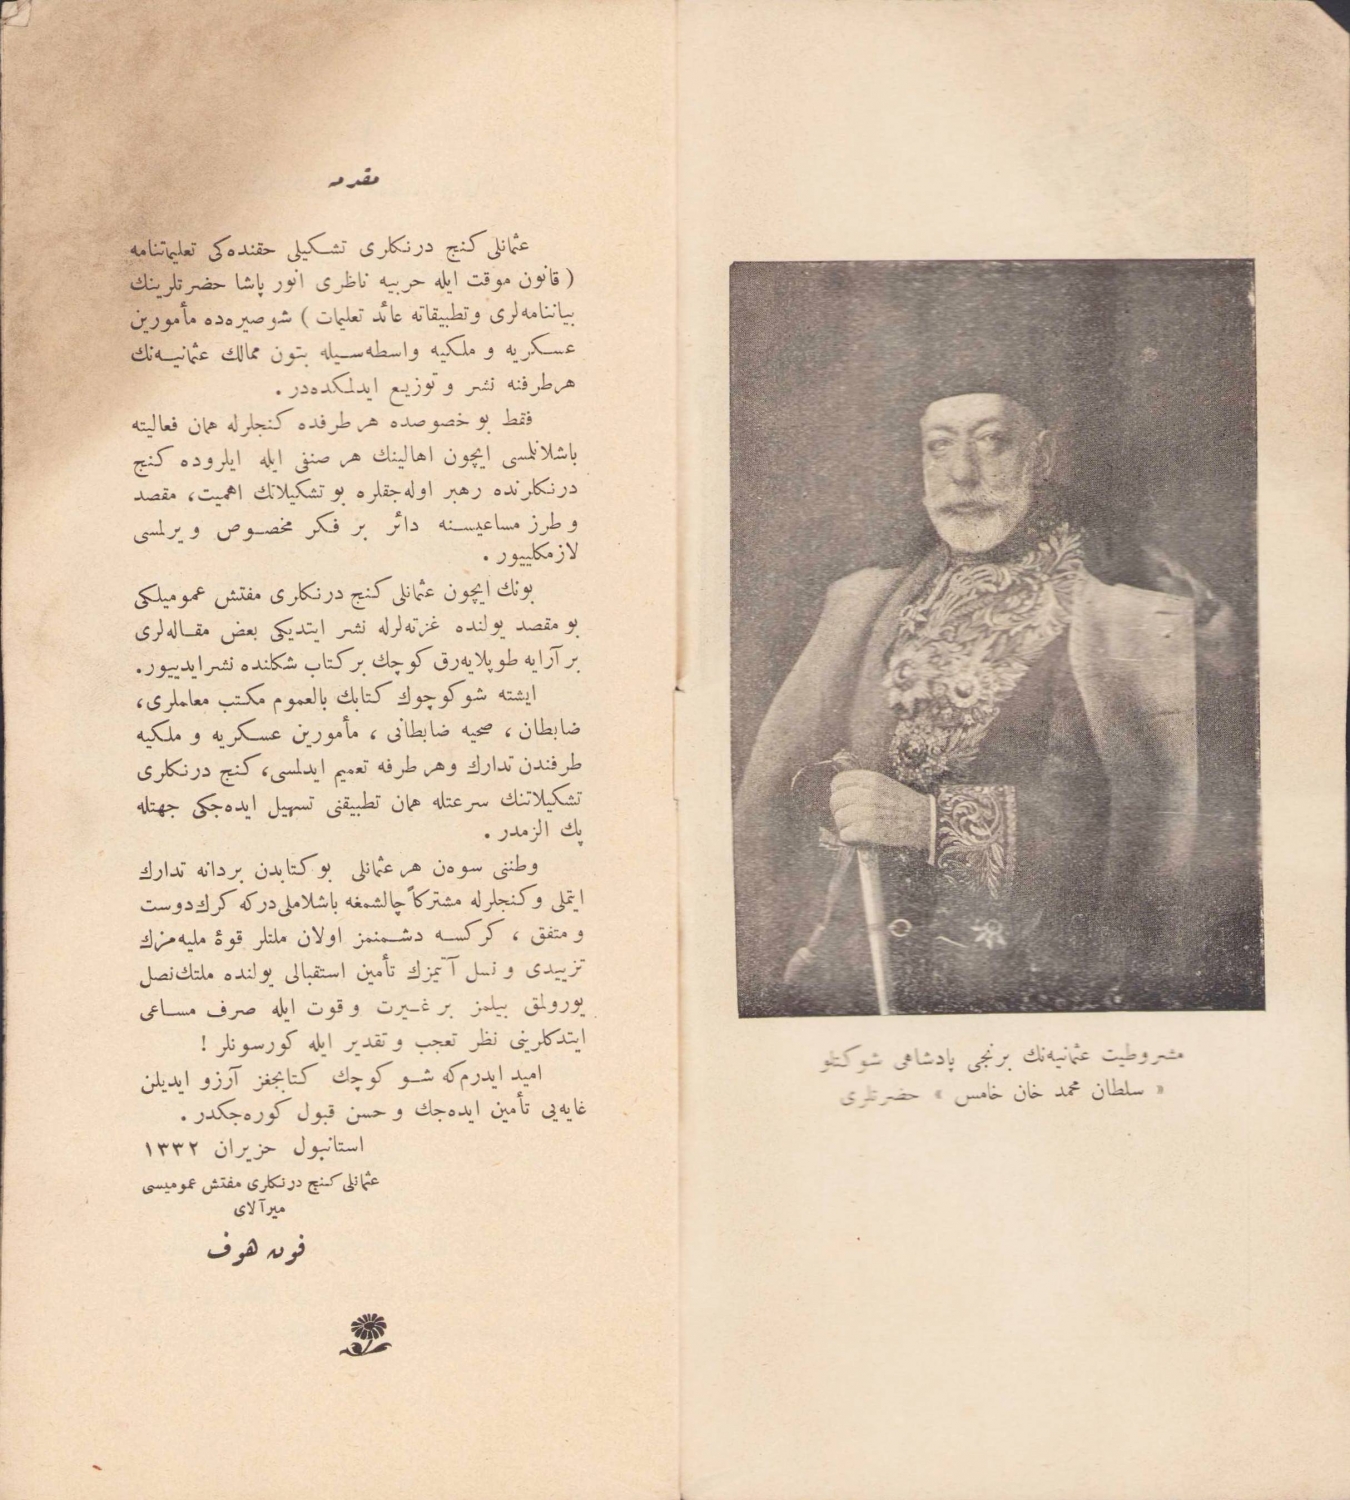 مشروطیت عثمانیه‌نك برنجی پادشاهی شوكتلو
« سلطان محمد خان خامس » حضرتلری
مقدمه
عثمانلی كنج درنكلری تشكیلی حقنده‌كی تعلیماتنامه
( قانون موقت ایله حربیه ناظری انور پاشا حضرتلرینك
بیاننامه‌لری وتطبیقاته عائد تعلیمات ) شو صیره‌ده مأمورین
عسكریه و ملكیه واسطه‌سیله بتون ممالك عثمانیه‌نك
هر طرفنه نشر و توزیع ایدلمكده‌در .
فقط بو خصوصده هر طرفده كنجلرله همان فعالیته
باشلانلمسی ایچون اهالینك هر صنفی ایله ایلروده كنج
درنكلرنده رهبر اوله‌جقلره بو تشكیلاتك اهمیت، مقصد
و طرز مساعیسنه دائر بر فكر مخصوص ویرلمسی
لازمكلییور .
بونك ایچون عثمانلی كنج درنكلری مفتش عمومیلكی
بو مقصد یولنده غزته‌لرله نشر ایتدیكی بعض مقاله‌لری
بر آرایه طوپلایه‌رق كوچك بر كتاب شكلنده نشر ایدییور.
ایشته شو كوچوك كتابك بالعموم مكتب معلملری،
ضابطان ، صحیه ضابطانی ، مأمورین عسكریه و ملكیه
طرفندن تدارك وهر طرفه تعمیم ایدلمسی، كنج درنكلری
تشكیلاتنك سرعتله همان تطبیقنی تسهیل ایده‌جكی جهتله
پك الزمدر .
وطننی سوه‌ن هر عثمانلی بو كتابدن بردانه تدارك
ایتملی و كنجلرله مشتركاً چالشمغه باشلاملی‌دركه كرك دوست
و متفق ، كركسه دشمنمز اولان ملتلر قوهٔ ملیه‌مزك
تزییدی و نسل آتیمزك تأمین استقبالی یولنده ملتك نصل
یورولمق بیلمز بر غیرت و قوت ایله صرف مساعی
ایتدكلرینی نظر تعجب و تقدیر ایله كورسونلر !
امید ایدرم‌كه شو كوچك كتابجغز آرزو ایدیلن
غایه‌یی تأمین ایده‌جك و حسن قبول كوره‌جكدر .
استانبول حزیران ١٣٣٢
عثمانلی كنج درنكلری مفتش عمومیسی
میرآلای
فون هوف